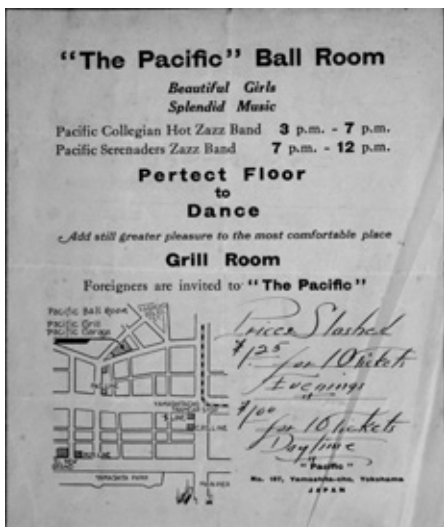 "The Pacific" Ball Room
Beautiful Girls
Splendid Music
Pacific Collegian Hot Zazz Band 3 p.m. - 7 p.m.
Pacific Serenaders Zazz Band 7 p.m. - 12 p.m.
Pertect Floor
to
Dance
Add still greater pleasure to the most comfortable place
Grill Room
Foreigners are invited to "The Pacific"
Pacific Ball Room
Pacific Grill
Pacific Garage
YAMASHITACHO
TRAMCAR STOP
YAMASHITA PARK
Prices Slashed
$1.25 for 10 tickets
Evenings
$1.00 for 10 tickets
Daytime
"Pacific"
No. 187, Yamashita-cho, Yokohama
JAPAN